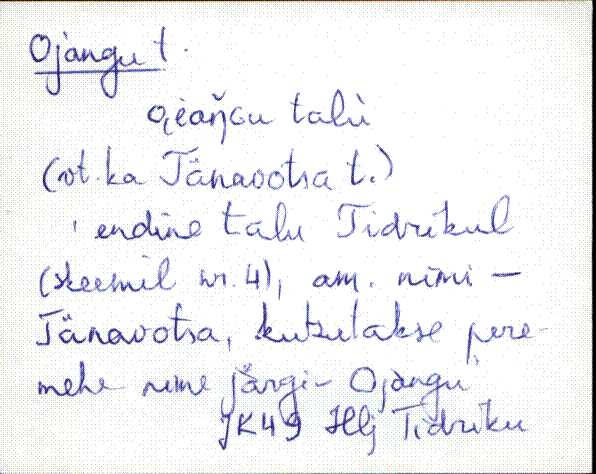 Ojangu t.
talù
(vt. ka Tänavotsa t.)
endine talu Tidrikul
(skeemil nr. 4), am. nimi –
Tänavotsa, kutsutakse pere-
mehe nime järgi – Ojangu
JK49 Hlj Tidriku